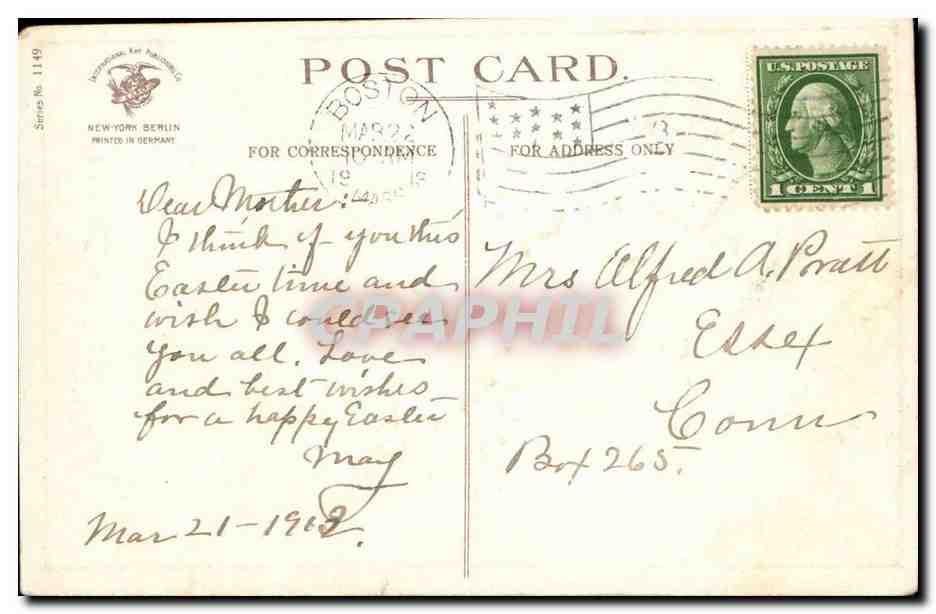 Series No. 1149
INTERNATIONAL ART PUBLISHING Co.
NEW-YORK BERLIN
PRINTED IN GERMANY
POST CARD.
BOSTON
MAR 22
19
FOR CORRESPONDENCE
FOR ADDRESS ONLY
U.S. POSTAGE
1 CENT 1
Dear Mother:
I think of you this
Easter time and
wish I could see
you all. Love
and best wishes
for a happy Easter
May
Mar 21-1913.
Mrs Alfred A. Pratt
Essex
Conn
Box 265.
CPAPHIL